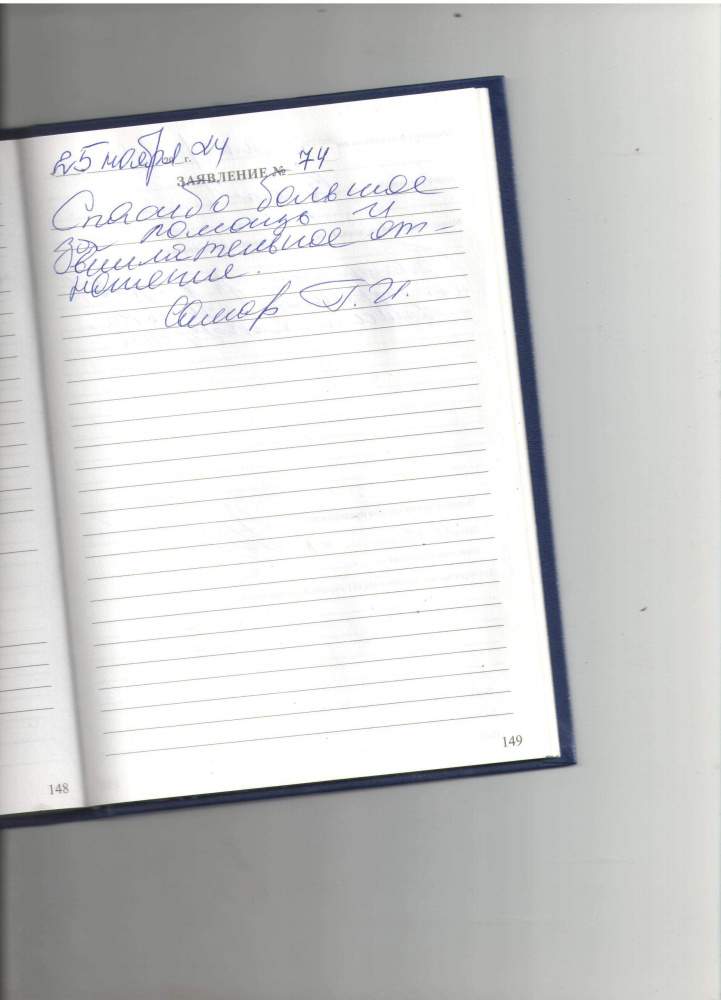 25 ноября 24 г.
ЗАЯВЛЕНИЕ № 74
Спасибо большое
за помощь и
внимательное от-
ношение.
Самар Г.И.
148
149